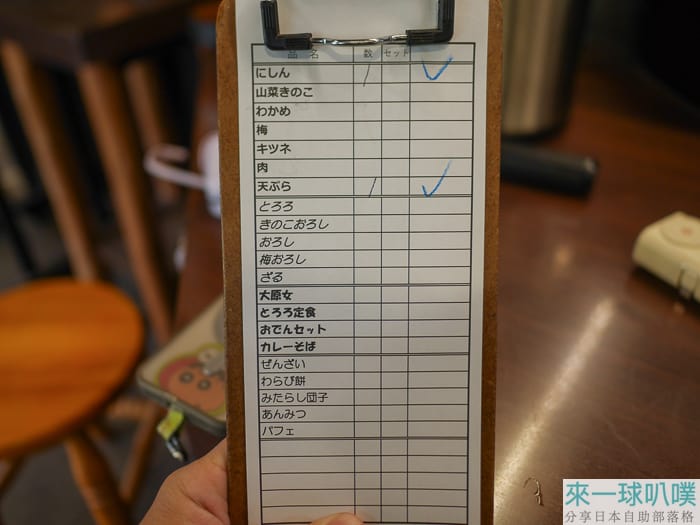 品 名 数 セット
にしん /
山菜きのこ
わかめ
梅
キツネ
肉
天ぷら /
とろろ
きのこおろし
おろし
梅おろし
ざる
大原女
とろろ定食
おでんセット
カレーそば
ぜんざい
わらび餅
みたらし団子
あんみつ
パフェ
來一球叭噗
分享日本自助部落格